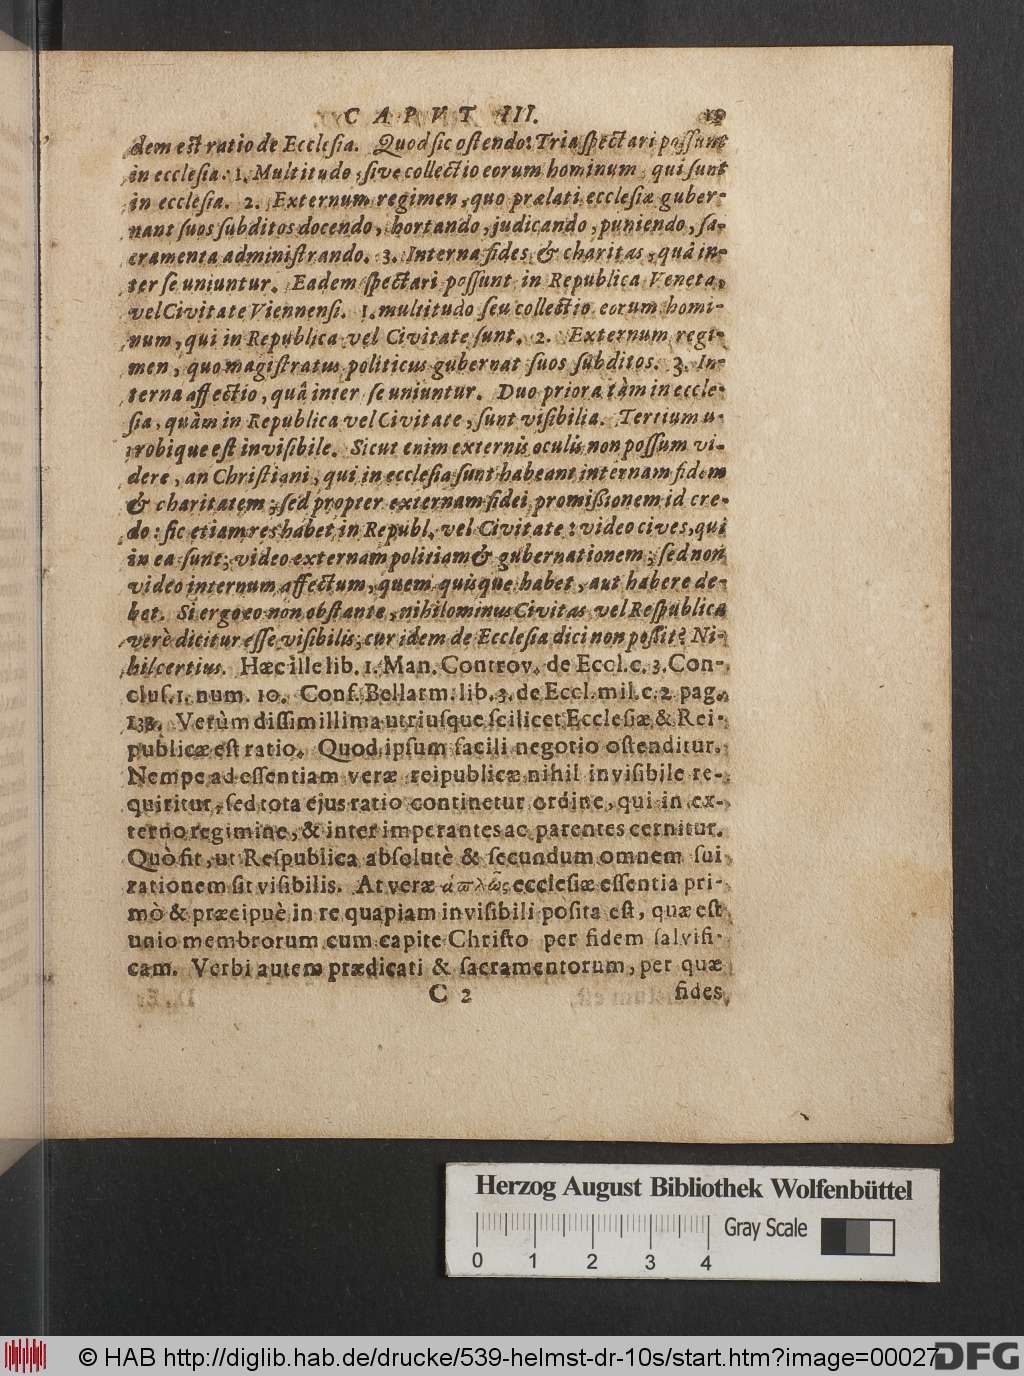 CAPUT III. 19
dem est ratio de Ecclesia. Quod sic ostendo: Tria spectari possunt
in ecclesia: 1. Multitudo, sive collectio eorum hominum, qui sunt
in ecclesia. 2. Externum regimen, quo prælati ecclesiæ guber-
nant suos subditos docendo, hortando, judicando, puniendo, sa-
cramenta administrando. 3. Interna fides & charitas, quâ in-
ter se uniuntur. Eadem spectari possunt in Republica Veneta,
vel Civitate Viennensi. 1. multitudo seu collectio eorum homi-
num, qui in Republica vel Civitate sunt. 2. Externum regi-
men, quo magistratus politicus gubernat suos subditos. 3. In-
terna affectio, quâ inter se uniuntur. Duo priora tàm in eccle-
sia, quàm in Republica vel Civitate, sunt visibilia. Tertium u-
trobique est invisibile. Sicut enim externis oculis non possum vi-
dere, an Christiani, qui in ecclesia sunt habeant internam fidem
& charitatem; sed propter externam fidei promißionem id cre-
do: sic etiam res habet in Republ. vel Civitate: video cives, qui
in ea sunt; video externam politiam & gubernationem; sed non
video internum affectum, quem quisque habet, aut habere de-
bet. Si ergo eo non obstante, nihilominus Civitas vel Respublica
verè dicitur esse visibilis; cur idem de Ecclesia dici non poßit? Ni-
hil certius. Hæc ille lib. 1. Man. Controv. de Eccl. c. 3. Con-
clus. 1. num. 10. Conf. Bellarm. lib. 3. de Eccl. mil. c. 2. pag.
138. Verùm dissimillima utriusque scilicet Ecclesiæ & Rei-
publicæ est ratio. Quod ipsum facili negotio ostenditur.
Nempe ad essentiam veræ reipublicæ nihil invisibile re-
quiritur, sed tota ejus ratio continetur ordine, qui in ex-
terno regimine, & inter imperantes ac parentes cernitur.
Quò fit, ut Respublica absolutè & secundum omnem sui
rationem sit visibilis. At veræ ἁπλῶς ecclesiæ essentia pri-
mò & præcipuè in re quapiam invisibili posita est, quæ est
unio membrorum cum capite Christo per fidem salvifi-
cam. Verbi autem prædicati & sacramentorum, per quæ
C 2 fides
Herzog August Bibliothek Wolfenbüttel
Gray Scale
0 1 2 3 4
© HAB http://diglib.hab.de/drucke/539-helmst-dr-10s/start.htm?image=00027
DFG